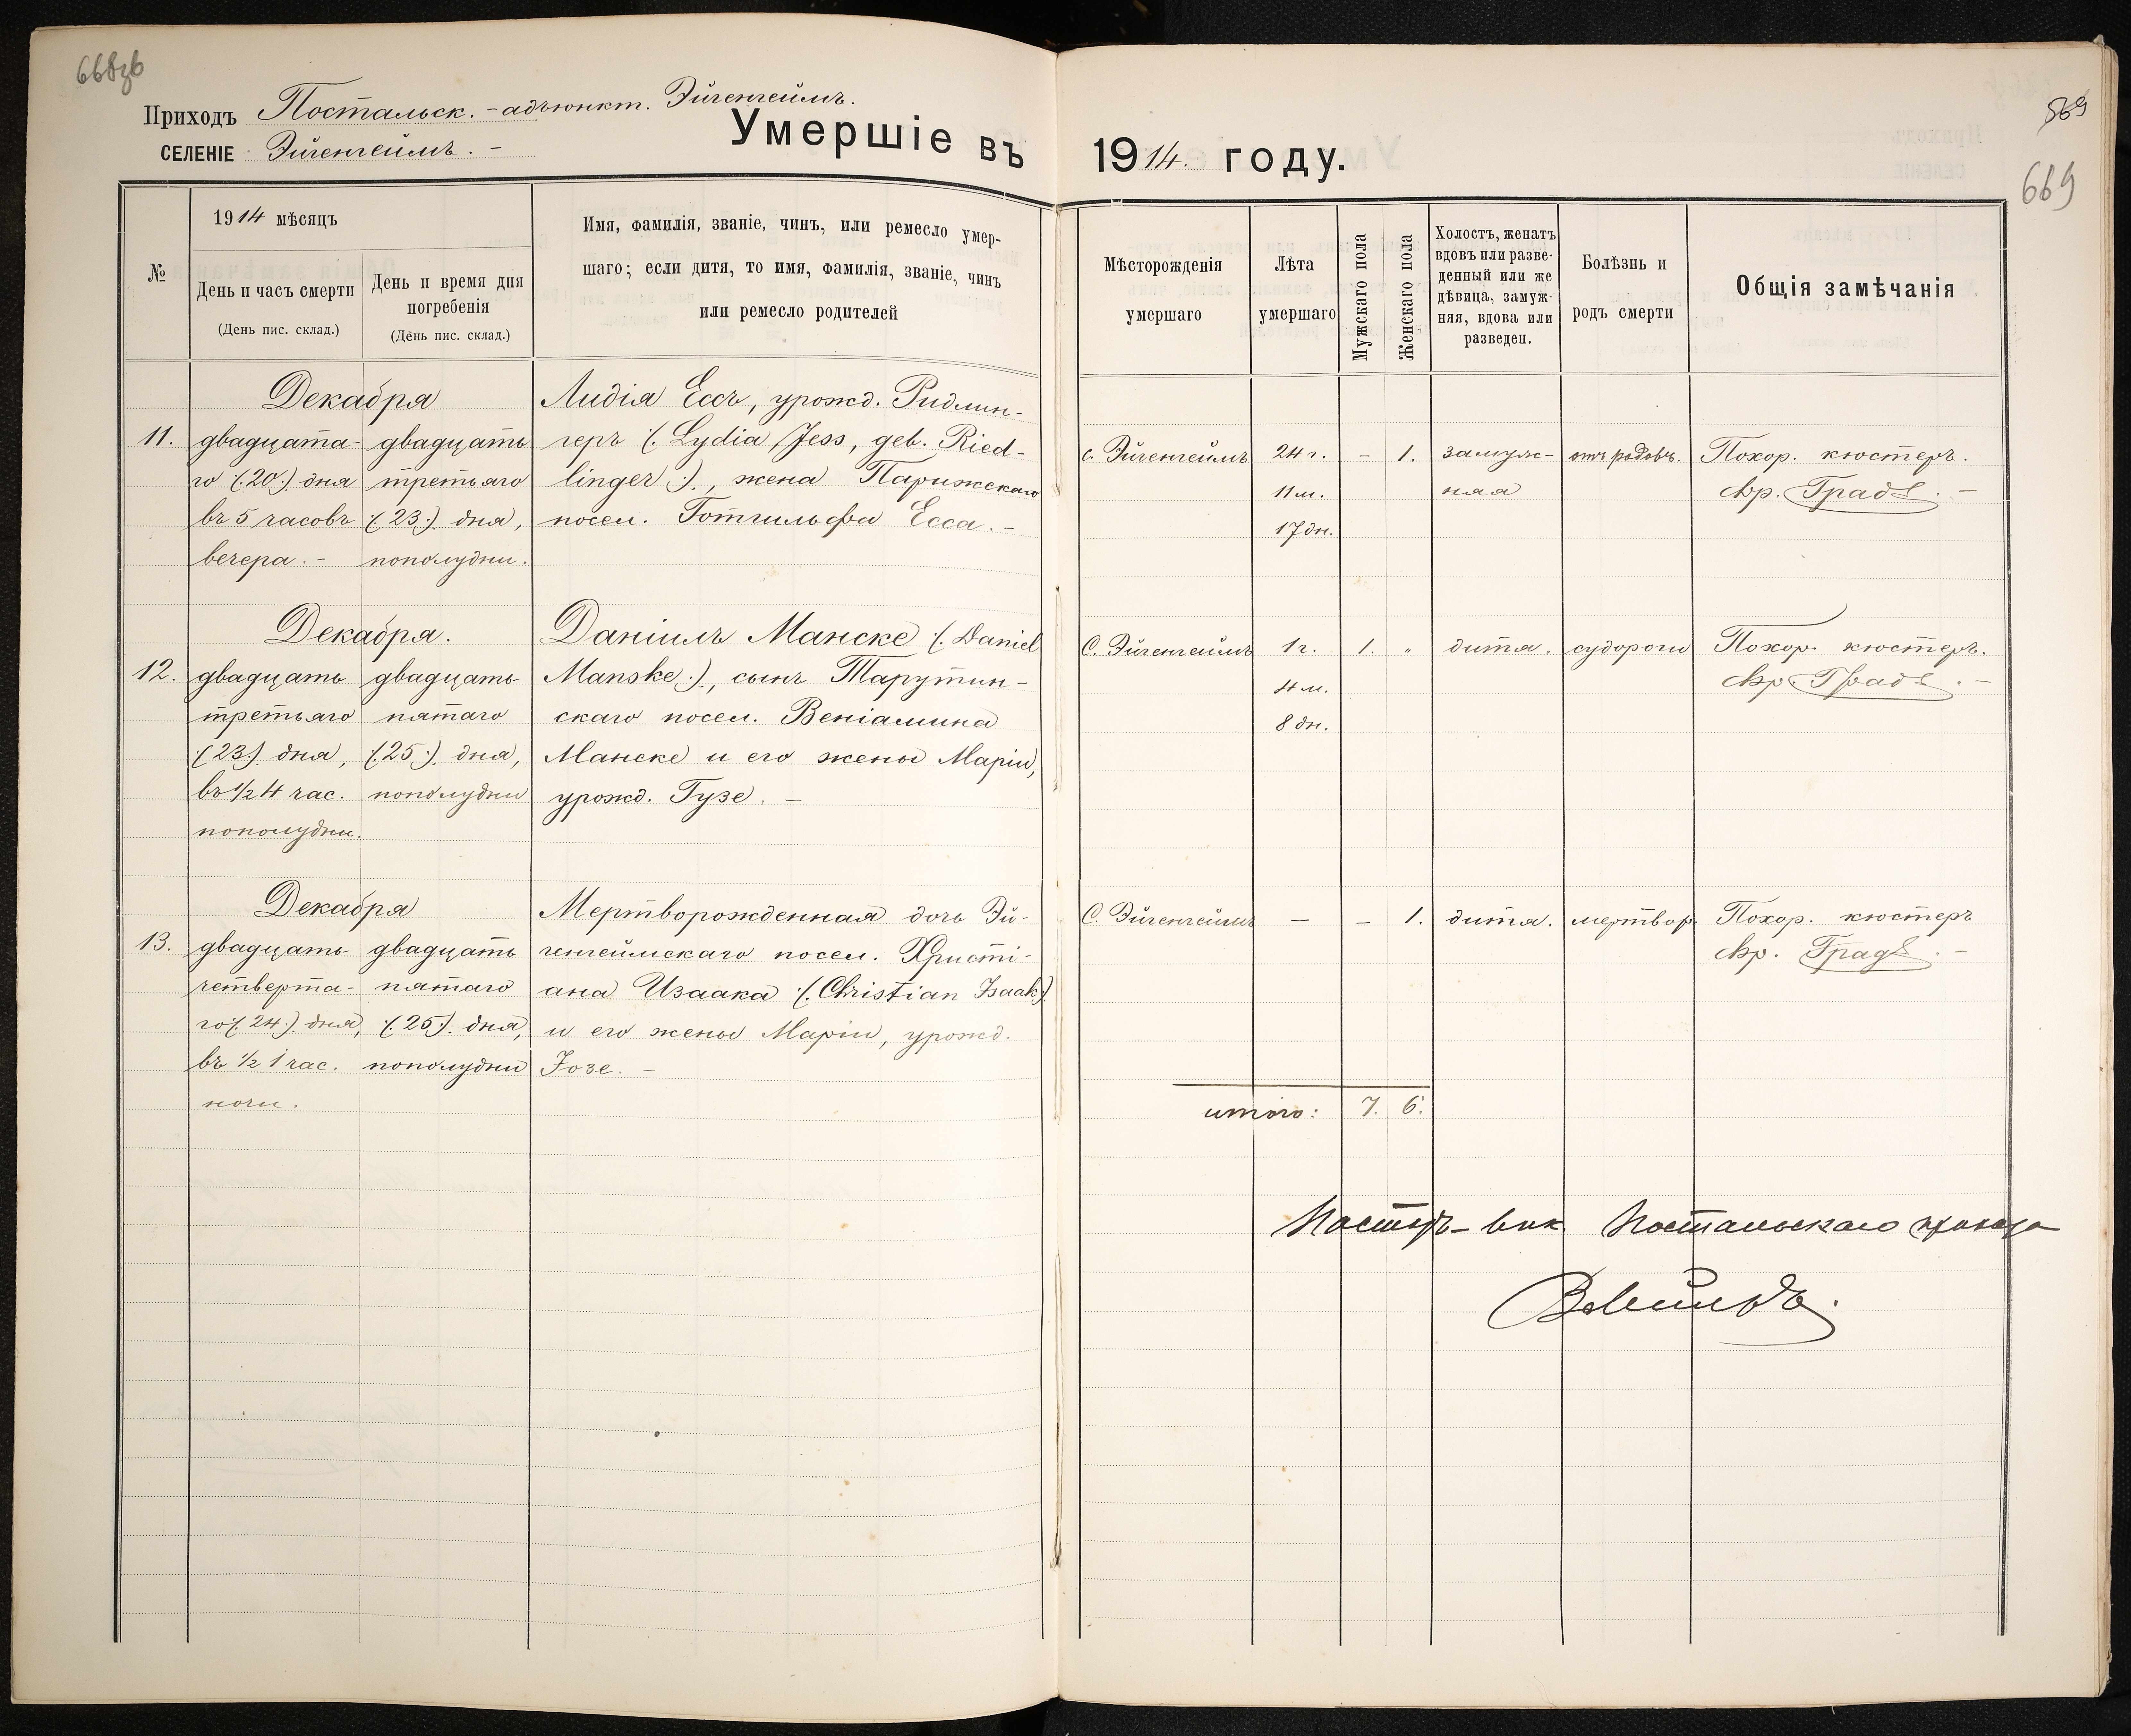 668зб
Приходъ Постальск. - адъюнкт. Эйгенгеймъ.
СЕЛЕНІЕ Эйгенгеймъ. -
Умершіе въ 1914. году.
669
№
1914 мѣсяцъ
День и часъ смерти
(День пис. склад.)
День и время дня
погребенія
(День пис. склад.)
Имя, фамилія, званіе, чинъ, или ремесло умер-
шаго; если дитя, то имя, фамилія, званіе, чинъ
или ремесло родителей
Мѣсторожденія
умершаго
Лѣта
умершаго
Мужскаго пола
Женскаго пола
Холостъ, женатъ
вдовъ или разве-
денный или же
дѣвица, замуж-
няя, вдова или
разведен.
Болѣзнь и
родъ смерти
Общія замѣчанія
11.
Декабря
двадцата-
го (:20:) дня
въ 5 часовъ
вечера. -
двадцать
третьяго
(:23:) дня,
пополудни.
Лидія Ессъ, урожд. Ридлин-
геръ (: Lydia Jess, geb. Ried-
linger :), жена Парижскаго
посел. Готгильфа Есса. -
с. Эйгенгеймъ
24 г.
11 м.
17 дн.
-
1.
замуж-
няя
отъ родовъ.
Похор. кюстеръ.
Хр. Граде. -
12.
Декабря.
двадцать
третьяго
(:23:) дня,
въ ½ 4 час.
пополудни.
двадцать
пятаго
(:25:) дня,
пополудни
Даніилъ Манске (: Daniel
Manske :), сынъ Тарутин-
скаго посел. Веніамина
Манске и его жены Маріи,
урожд. Гузе. -
С. Эйгенгеймъ
1 г.
4 м.
8 дн.
1.
"
дитя.
судороги
Похор. кюстеръ.
Хр. Граде. -
13.
Декабря
двадцать
четверта-
го (:24:) дня,
въ ½ 1 час.
ночи.
двадцать
пятаго
(:25:) дня,
пополудни
Мертворожденная дочь Эй-
генгеймскаго посел. Христі-
ана Изаака (: Christian Isaak :)
и его жены Маріи, урожд.
Гозе. -
С. Эйгенгеймъ
-
-
1.
дитя.
мертвор.
Похор. кюстеръ
Хр. Граде. -
итого: 7. 6.
Пасторъ - вик. Постальскаго прихода